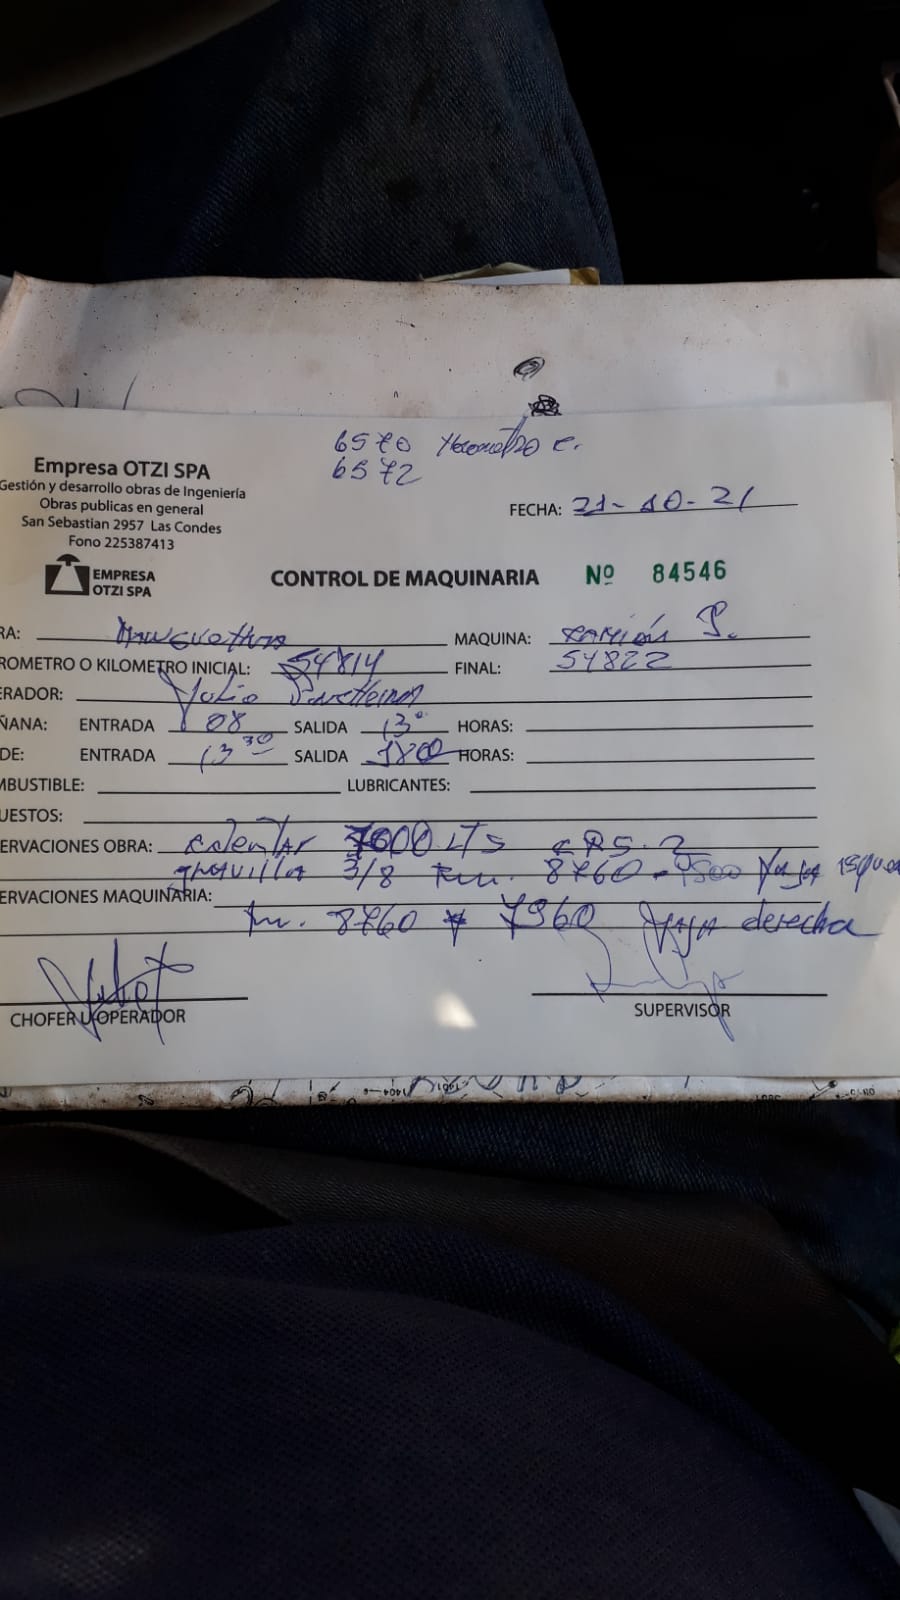 6570 Horometro C.
6572
Empresa OTZI SPA
Gestión y desarrollo obras de Ingeniería
Obras publicas en general
San Sebastian 2957 Las Condes
Fono 225387413
FECHA: 21-10-21
EMPRESA
OTZI SPA
CONTROL DE MAQUINARIA Nº 84546
RA: MAQUINA: Camión P.
ROMETRO O KILOMETRO INICIAL: 54814 FINAL: 54822
ERADOR: Julio
ÑANA: ENTRADA 08 SALIDA 13° HORAS:
DE: ENTRADA 13 30 SALIDA 1800 HORAS:
MBUSTIBLE: LUBRICANTES:
UESTOS:
ERVACIONES OBRA: calentar 7000 LTS CRS.2
gravilla 3/8 Km. 8760 - 7500 faja isqu
ERVACIONES MAQUINARIA:
Km. 8760 7960 faja derecha
CHOFER U OPERADOR
SUPERVISOR